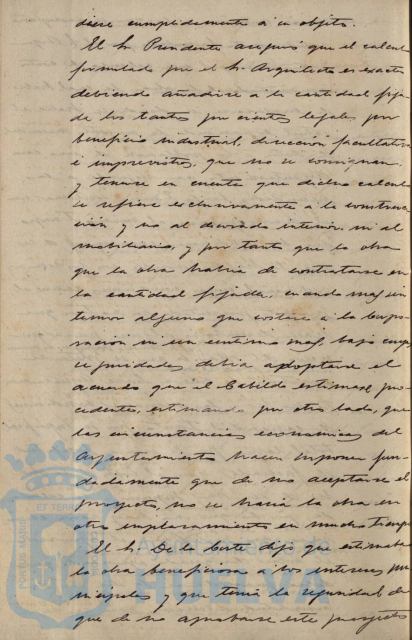 diese cumplidamente á su objeto.
El Sr. Presidente aseguró que el calculo
formulado por el Sr. Arquitecto es exacto
debiendo añadirse á la cantidad fija-
da los tantos por cientos legales por
beneficio industrial, dirección facultativa
é imprevistos, que no se consignan
y tenerse en cuenta que dicho calculo
se refiere esclusivamente á la construc-
ción y no al decorado interior, ni al
mobiliario, y por tanto que la obra
que la obra habria de contratarse en
la cantidad fijada, cuando mas sin
temor alguno que costase á la Corpo-
ración ni un centimo mas, bajo cuyas
seguridades debia adoptarse el
acuerdo que el Cabildo estimase pro-
cedente, estimando por otro lado, que
las circunstancias economicas del
Ayuntamiento hacen suponer fun-
dadamente que de no aceptarse el
proyecto, no se haria la obra en
otro emplazamiento en mucho tiempo
El Sr. De la Corte dijo que estimaba
la obra beneficiosa á los intereses mu-
nicipales y que tenia la seguridad de
que de no aprobarse este proyecto
PORTUS MARIS ET TERRAE
Ayuntamiento de
HUELVA